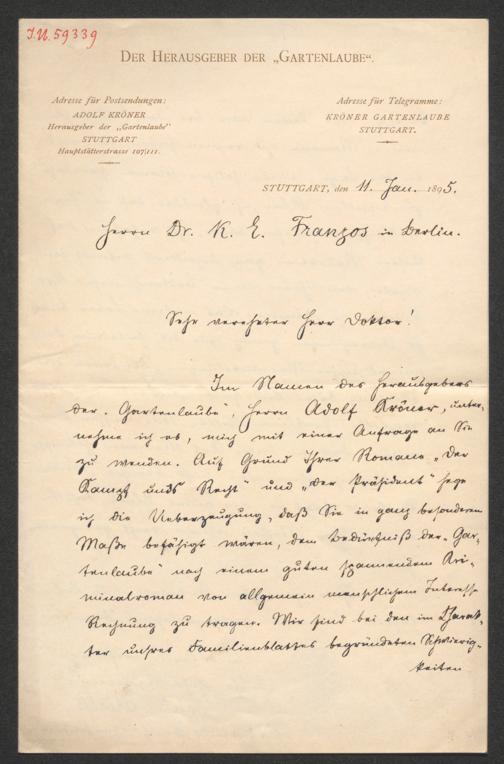 I.N. 59339
DER HERAUSGEBER DER „GARTENLAUBE“.
Adresse für Postsendungen:
ADOLF KRÖNER
Herausgeber der „Gartenlaube“
STUTTGART
Hauptstätterstrasse 107/111.
Adresse für Telegramme:
KRÖNER GARTENLAUBE
STUTTGART.
STUTTGART, den 11. Jan. 1895.
Herrn Dr. K. E. Franzos in Berlin.
Sehr verehrter Herr Doktor!
Im Namen des Herausgebers
der „Gartenlaube“, Herrn Adolf Kröner, unter-
nehme ich es, mich mit einer Anfrage an Sie
zu wenden. Auf Grund Ihrer Romane „Der
Kampf ums Recht“ und „Der Präsident“ hege
ich die Ueberzeugung, daß Sie in ganz besonderem
Maße befähigt wären, dem Bedürfniß der „Gar-
tenlaube“ nach einem guten spannenden Kri-
minalroman von allgemein menschlichem Interesse
Rechnung zu tragen. Wir sind bei den im Charak-
ter unsres Familienblattes begründeten Schwierig-
keiten